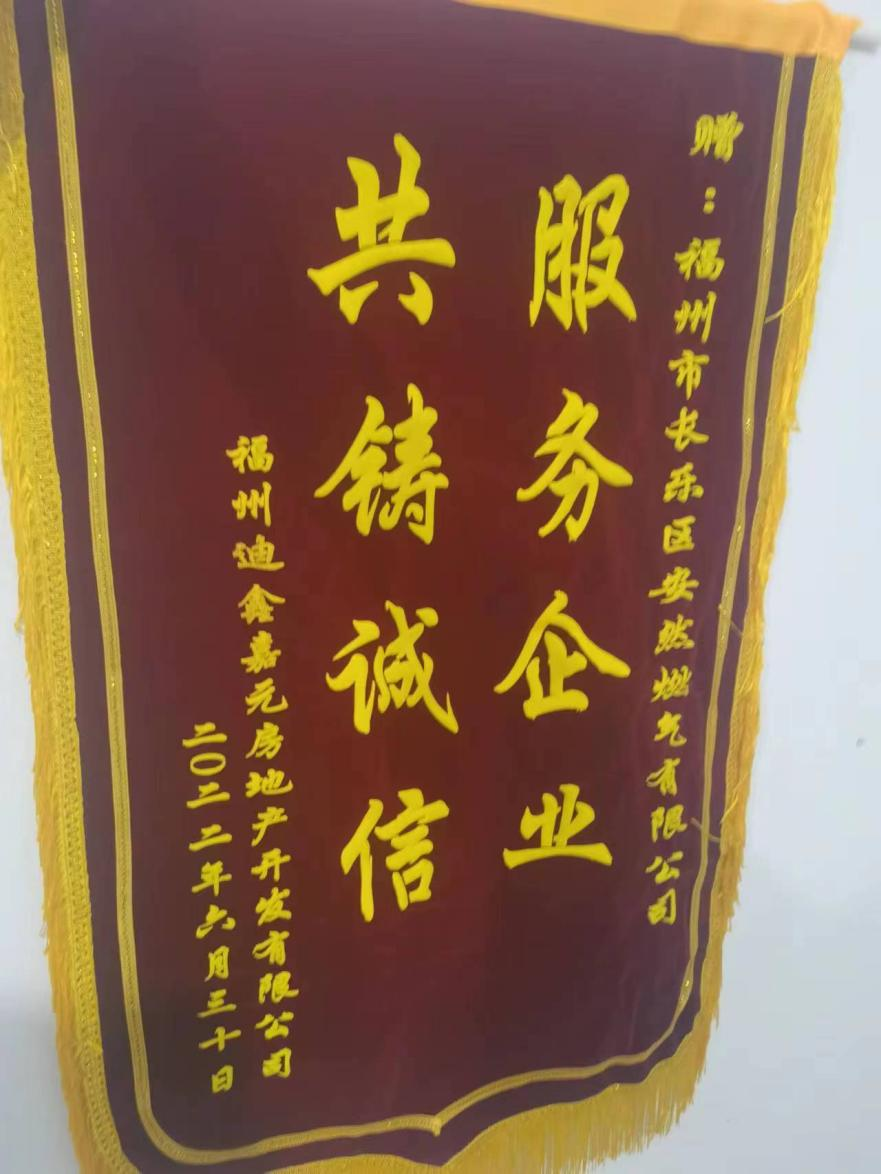 赠：福州市长乐区安然燃气有限公司
服务企业
共铸诚信
福州迪鑫嘉元房地产开发有限公司
二〇二二年六月三十日